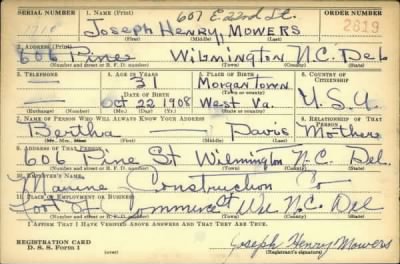 SERIAL NUMBER 1. NAME (Print) 607 E. 22nd St. ORDER NUMBER
Joseph Henry Mowers 2819
(First) (Middle) (Last)
2. ADDRESS (Print)
606 Pines Wilmington N.C. Del
(Number and street or R. F. D. number) (Town) (County) (State)
3. TELEPHONE 4. AGE IN YEARS 5. PLACE OF BIRTH 6. COUNTRY OF CITIZENSHIP
— 31 Morgantown
DATE OF BIRTH (Town or county)
— Oct 22 1908 West Va. U.S.A
(Exchange) (Number) (Mo.) (Day) (Yr.) (State or country)
7. NAME OF PERSON WHO WILL ALWAYS KNOW YOUR ADDRESS 8. RELATIONSHIP OF THAT PERSON
Bertha — Davis Mother
(Mr., Mrs., Miss) (First) (Middle) (Last)
9. ADDRESS OF THAT PERSON
606 Pine St Wilmington N.C. Del.
(Number and street or R. F. D. number) (Town) (County) (State)
10. EMPLOYER'S NAME
Marine Construction Co
11. PLACE OF EMPLOYMENT OR BUSINESS
Foot of Commerce St Wil N.C. Del
(Number and street or R. F. D. number) (Town) (County) (State)
I AFFIRM THAT I HAVE VERIFIED ABOVE ANSWERS AND THAT THEY ARE TRUE.
REGISTRATION CARD
D. S. S. Form 1 Joseph Henry Mowers
(Registrant's signature)